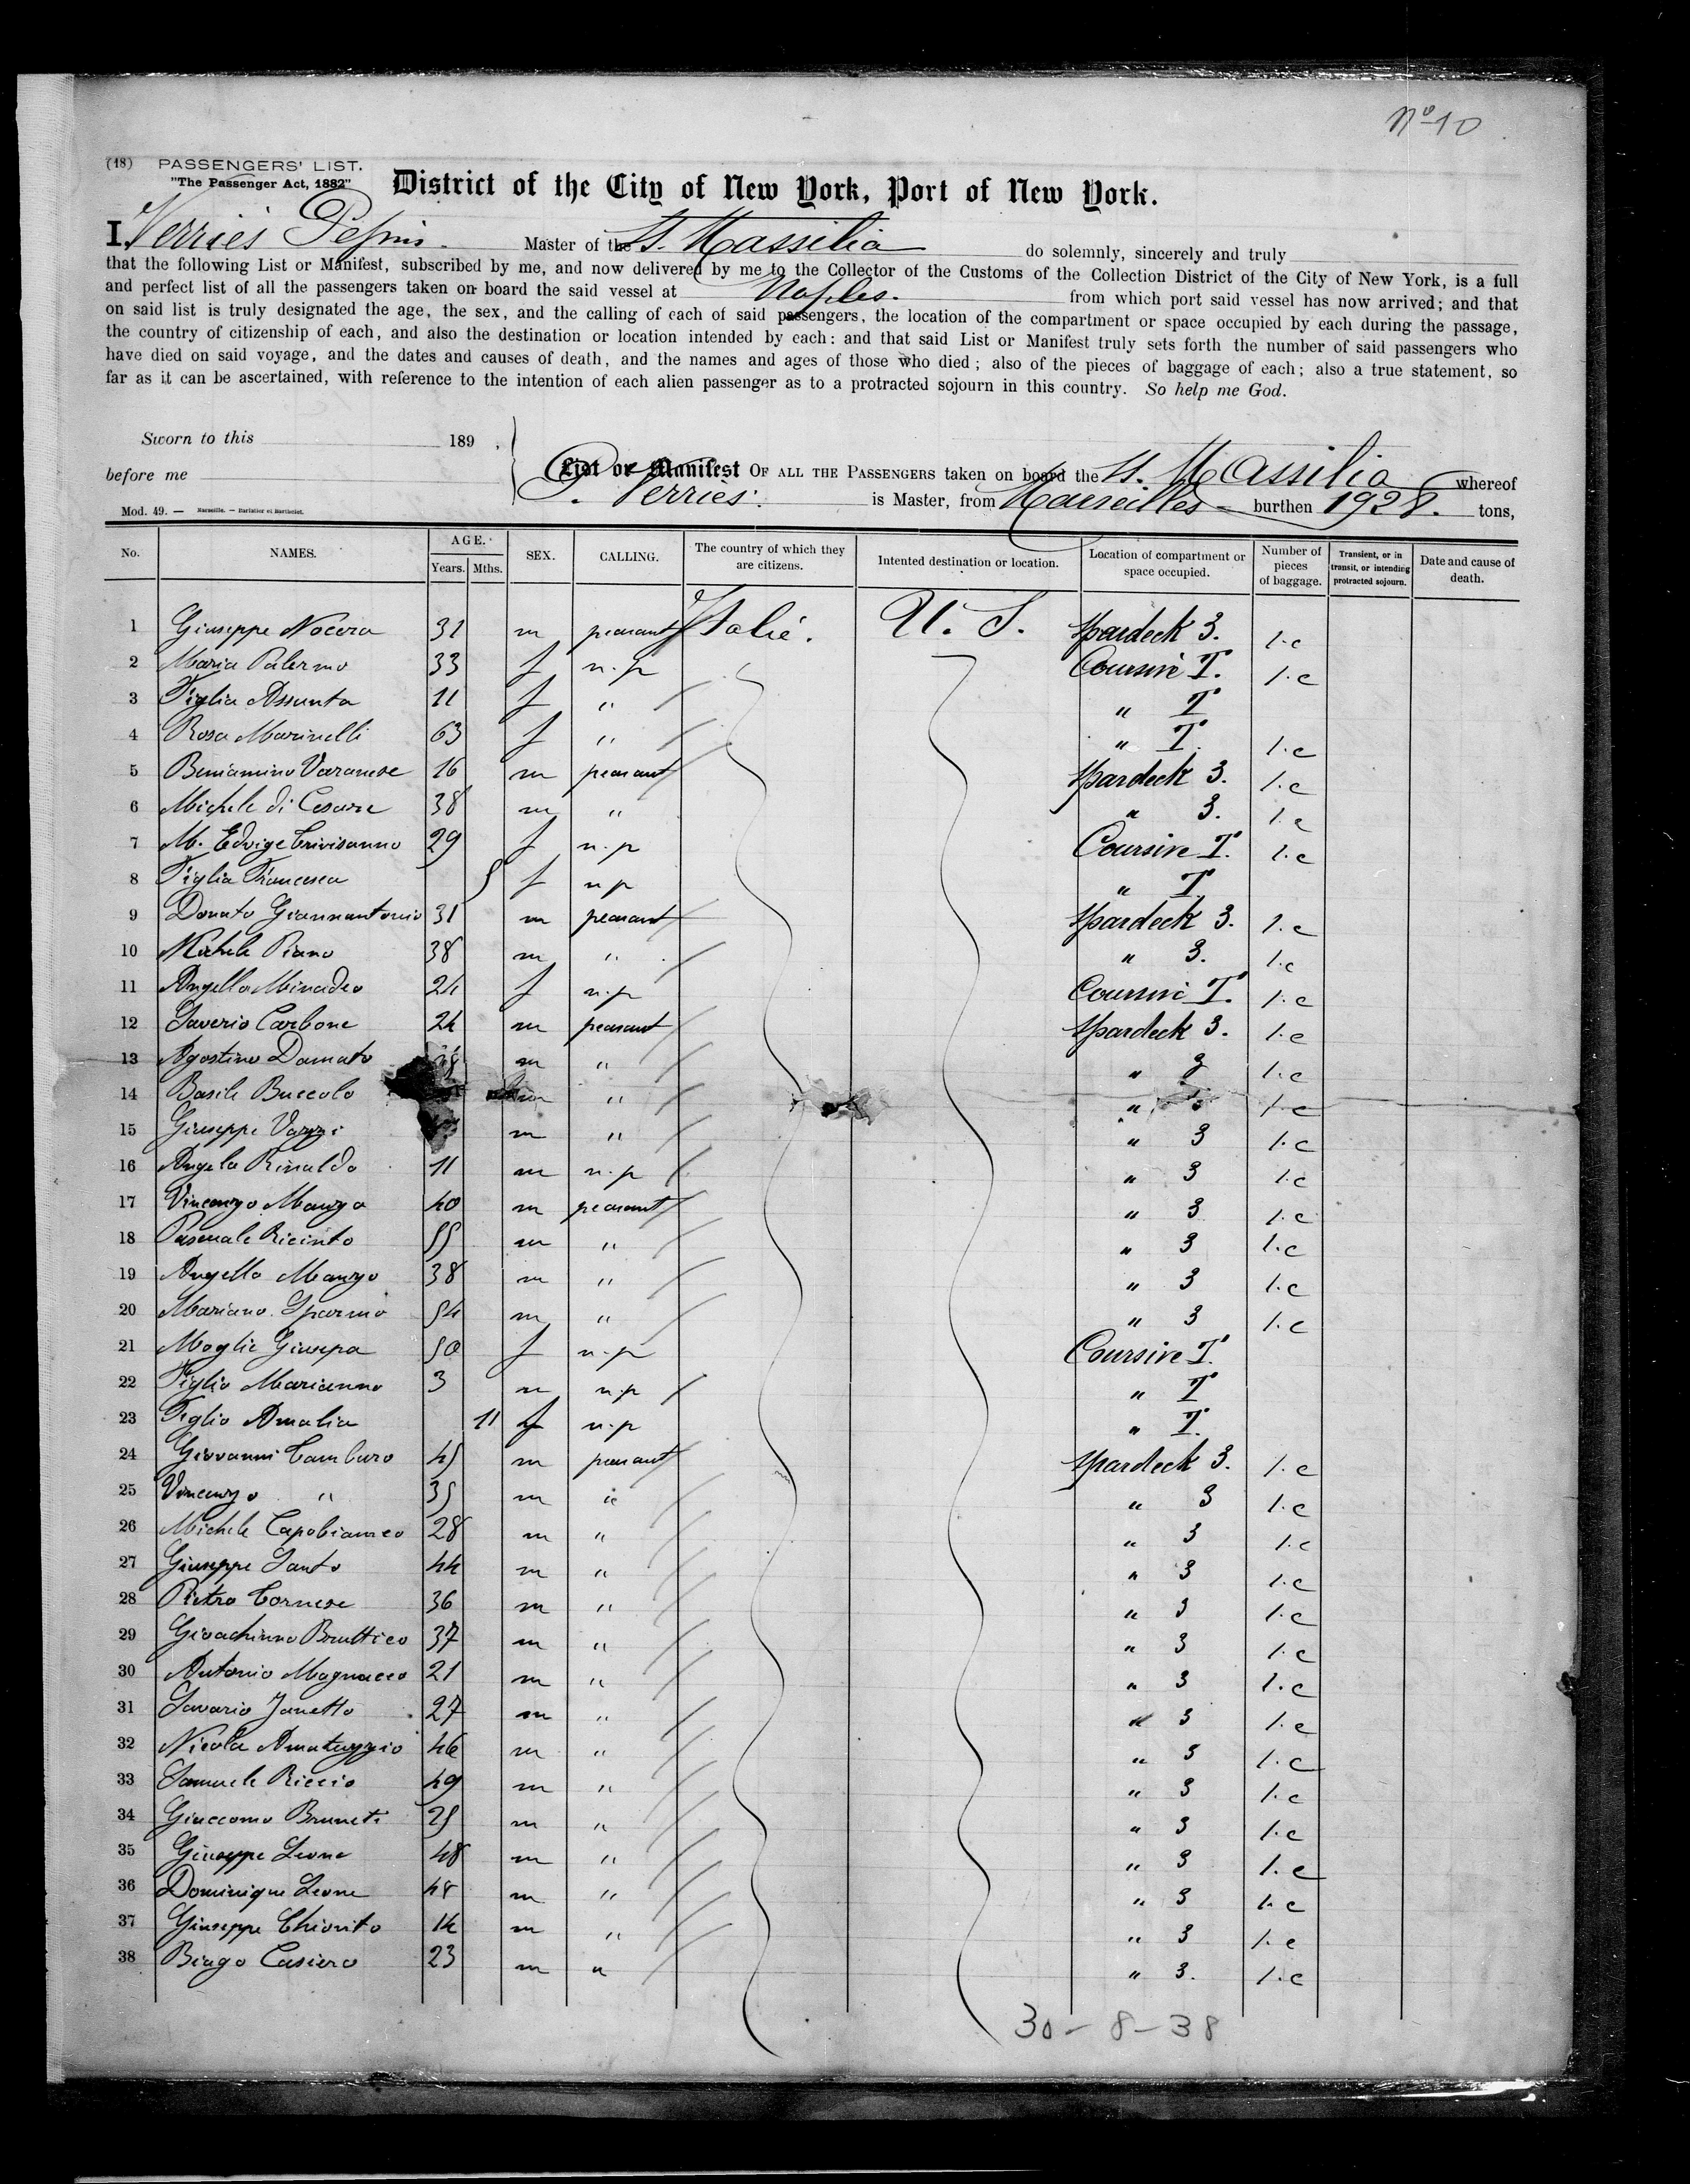 Nº 10
(18) PASSENGERS' LIST.
"The Passenger Act, 1882"
District of the City of New York, Port of New York.
I, Verries Pepin. Master of the St. Massilia do solemnly, sincerely and truly
that the following List or Manifest, subscribed by me, and now delivered by me to the Collector of the Customs of the Collection District of the City of New York, is a full
and perfect list of all the passengers taken on board the said vessel at Naples. from which port said vessel has now arrived; and that
on said list is truly designated the age, the sex, and the calling of each of said passengers, the location of the compartment or space occupied by each during the passage,
the country of citizenship of each, and also the destination or location intended by each: and that said List or Manifest truly sets forth the number of said passengers who
have died on said voyage, and the dates and causes of death, and the names and ages of those who died; also of the pieces of baggage of each; also a true statement, so
far as it can be ascertained, with reference to the intention of each alien passenger as to a protracted sojourn in this country. So help me God.
Sworn to this 189 .
before me
List or Manifest OF ALL THE PASSENGERS taken on board the St. Massilia whereof
P. Verries. is Master, from Marseilles burthen 1928. tons,
Mod. 49. — Marseille. — Barlatier et Barthelet.
No. NAMES. AGE. Years. Mths. SEX. CALLING. The country of which they are citizens. Intented destination or location. Location of compartment or space occupied. Number of pieces of baggage. Transient, or in transit, or intending protracted sojourn. Date and cause of death.
1 Giuseppe Nocera 31 m peasant Italie. U. S. Spardeck 3. 1.c
2 Maria Palermo 33 f n.p Coursive T. 1.c
3 Figlia Assunta 11 f " " T
4 Rosa Marinelli 63 f " " T. 1.c
5 Beniamino Varanese 16 m peasant Spardeck 3. 1.c
6 Michele di Cesare 38 m " " 3. 1.c
7 M. Edvige Crivisanno 29 f n.p Coursive T. 1.c
8 Figlia Francesca 5 f n p " T
9 Donato Giannantonio 31 m peasant Spardeck 3. 1.c
10 Michele Piano 38 m " " 3. 1.c
11 Angella Minadeo 24 f n.p Coursive T. 1.c
12 Saverio Carbone 24 m peasant Spardeck 3. 1.c
13 Agostino Damato m " " 3 1.c
14 Basile Buccolo m " " 1.c
15 Giuseppe m " " 3 1.c
16 Angelo Rinaldo 11 m n.p " 3 1.c
17 Vincenzo Manzo 40 m peasant " 3 1.c
18 Pasquale Ricinto 55 m " " 3 1.c
19 Angello Manzo 38 m " " 3 1.c
20 Mariano Sparmo 54 m " " 3 1.c
21 Moglie Giusepa 50 f n.p Coursive T.
22 Figlio Marianno 3 m n.p " T
23 Figlio Amalia 11 f n.p " T.
24 Giovanni Camburo 45 m peasant Spardeck 3. 1.c
25 Vincenzo " 35 m " " 3 1.c
26 Michele Capobianco 28 m " " 3 1.c
27 Giuseppe Santo 44 m " " 3 1.c
28 Pietro Cornese 36 m " " 3 1.c
29 Gioachinno Bruttico 37 m " " 3 1.c
30 Antonio Magnacco 21 m " " 3 1.c
31 Savario Janetto 27 m " " 3 1.c
32 Nicola Amatuzzio 46 m " " 3 1.c
33 Samuele Riccio 49 m " " 3 1.c
34 Giaccomo Bruneti 25 m " " 3 1.c
35 Giuseppe Leone 48 m " " 3 1.c
36 Dominique Leone 48 m " " 3 1.c
37 Giuseppe Chiorito 14 m " " 3 1.c
38 Biago Casiero 23 m " " 3. 1.c
30 - 8 - 38